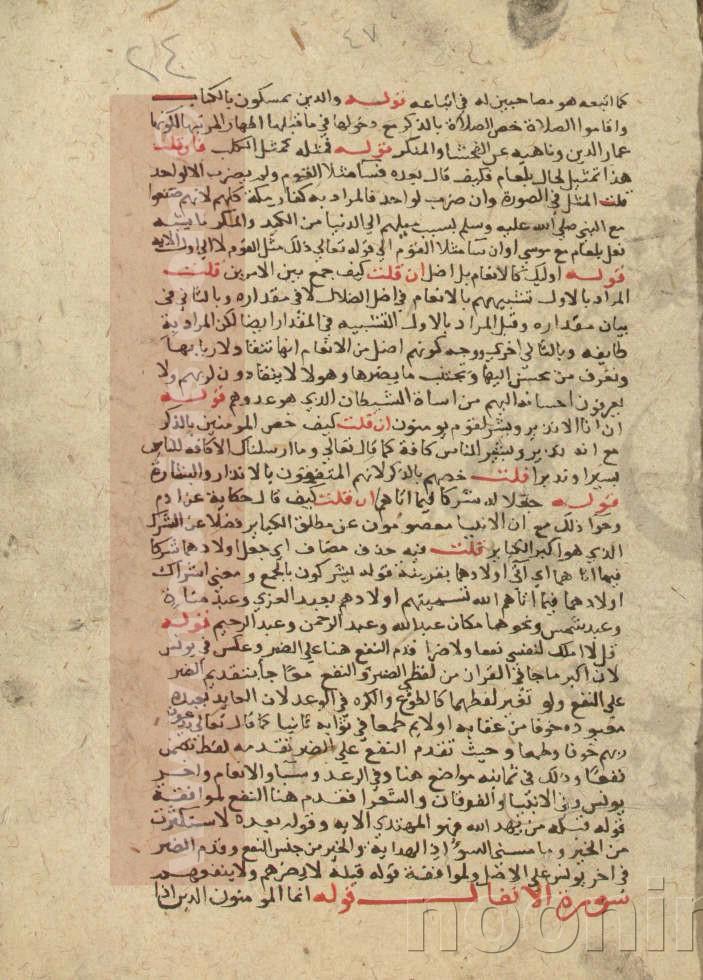 ٤٧
٢٤
كما اتبعه هو مصاحبين له في اتباعه قوله والذين يمسكون بالكتاب
واقاموا الصلاة خص الصلاة بالذكر مع دخولها في ما قبلها اظهارا لمرتبها لكونها
عماد الدين وناهية عن الفحشا والمنكر قوله فمثله كمثل الكلب فان قلت
هذا تمثيل لحال بلعام فكيف قال بعده فسا مثلا القوم ولم يضرب الا لواحد
قلت المثل في الصورة وان ضرب لواحد فالمراد به كفار مكة كلهم لانهم صنعوا
مع النبي صلي الله عليه وسلم بسبب ميلهم الي الدنيا من الكيد والمكر ما يشبه
فعل بلعام مع موسي او ان سا مثلا القوم الي قوله تعالي ذلك مثل القوم لا الي اول الايه
قوله اوليك كالانعام بل اضل ان قلت كيف جمع بين الامرين قلت
المراد بالاول تشبيههم بالانعام في اصل الضلال لا في مقداره وبالثاني في
بيان مقداره وقيل المراد بالاول التشبيه في المقدار ايضا لكن المراد به
طايفه وبالثاني اخري ووجه كونهم اضل من الانعام انها تنقاد لاربابها
وتعرف من يحسن اليها وتجتنب ما يضرها وهولا لا ينقادون لربهم ولا
يعرفون احسانه اليهم من اساة الشيطان الذي هو عدوهم قوله
ان انا الا نذير وبشير لقوم يومنون ان قلت كيف خص المومنين بالذكر
مع انه نذير وبشير للناس كافة كما قال تعالي وما ارسلناك الا كافه للناس
بشيرا ونذيرا قلت خصهم بالذكر لانهم المنتفعون بالانذار والبشارة
قوله جعلا له شركا فيما اتاهما ان قلت كيف قال حكاية عن ادم
وحوا ذلك مع ان الانبيا معصومون عن مطلق الكباير فضلا عن الشرك
الذي هو اكبر الكباير قلت فيه حذف مضاف اي جعل اولادهما شركا
فيما اتاهما اي اتي اولادهما بقرينة قوله يشركون بالجمع ومعني اشراك
اولادهما فيما اتاهم الله تسميتهم اولادهم بعبد العزي وعبد مناة
وعبد شمس ونحوها مكان عبد الله وعبد الرحمن وعبد الرحيم قوله
قل لا املك لنفسي نفعا ولا ضرا قدم النفع هنا علي الضر وعكس في يونس
لان اكبر ما جا في القران من لفظي الضر والنفع معا جا بتقديم الضر
علي النفع ولو بغير لفظهما كالطوع والكره في الرعد لان العابد يعبد
معبوده خوفا من عقابه اولا ثم طمعا في ثوابه ثانيا كما قال تعالي يدعون
ربهم خوفا وطمعا وحيث تقدم النفع علي الضر تقدمه لفظ تضمن
نفعا وذلك في ثمانيه مواضع هنا وفي الرعد وسبا والانعام واخر
يونس وفي الانبيا والفرقان والشعرا فقدم هنا النفع لموافقة
قوله قبله من يهد الله فهو المهتدي الايه وقوله بعده لاستكثرت
من الخير وما مسني السوء اذ الهداية والخير من جنس النفع وقدم الضر
في اخر يونس علي الاصل ولموافقة قوله قبله لا يضرهم ولا ينفعهم
سورة الانفال قوله انما المومنون الذين اذا
noorlib